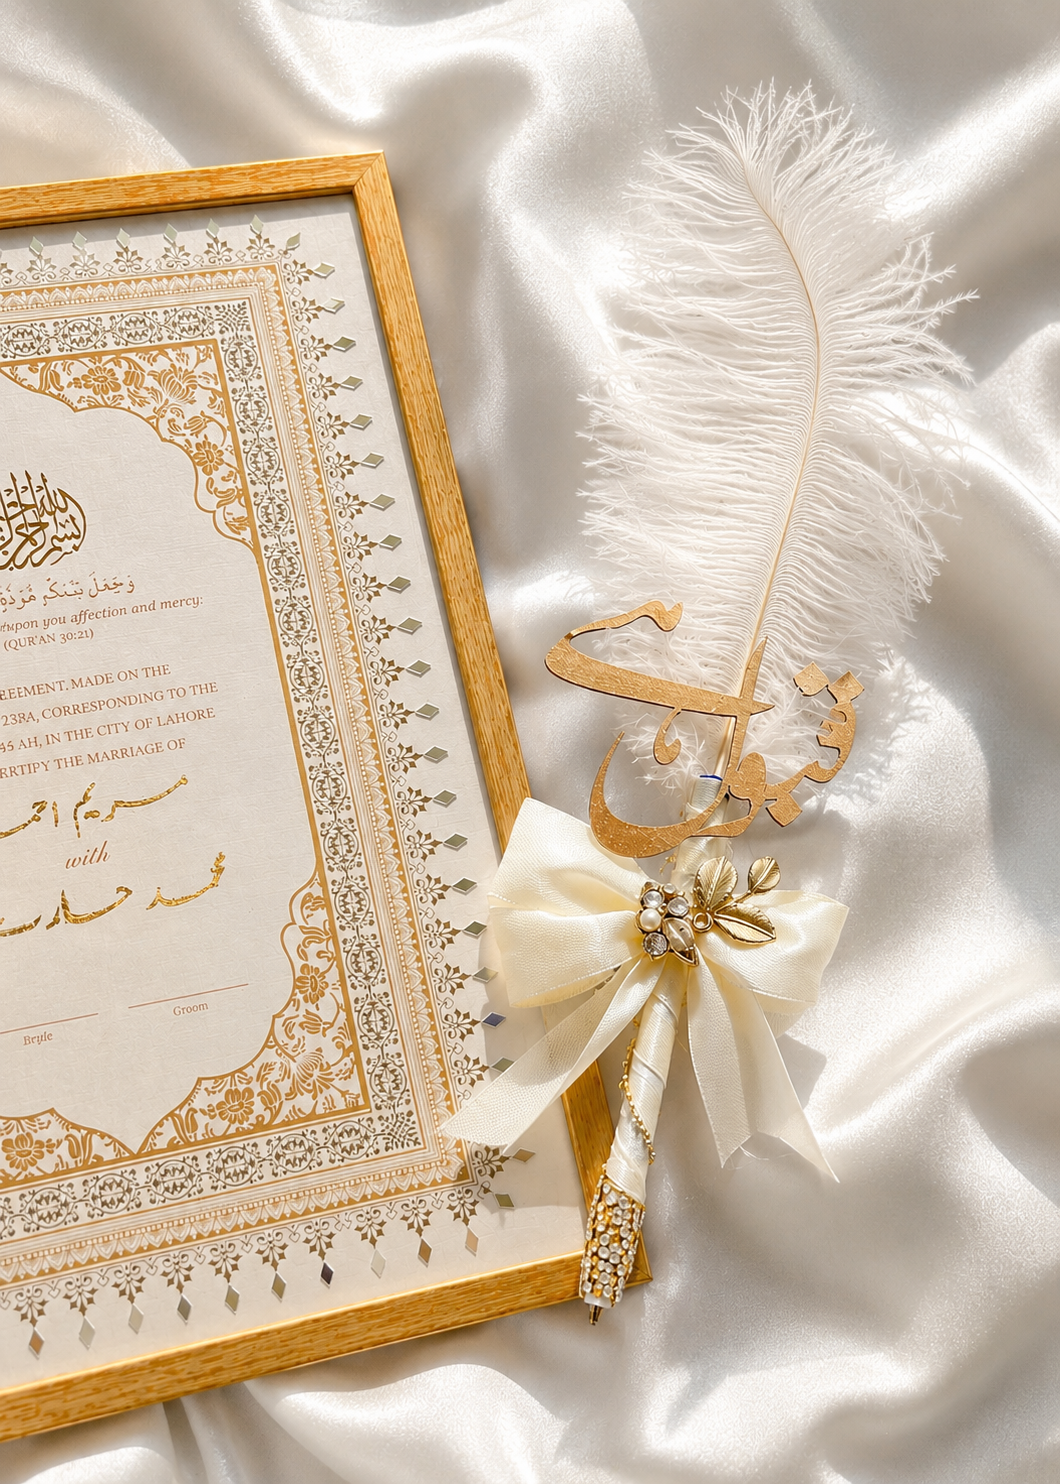 بسم الله الرحمن الرحيم
وَجَعَلَ بَيْنَكُم مَّوَدَّةً
upon you affection and mercy:
(QUR'AN 30:21)
MADE ON THE
CORRESPONDING TO THE
45 AH, IN THE CITY OF LAHORE
RRTIFY THE MARRIAGE OF
مريم احمد
with
محمد حارث
Groom
قبول ہے